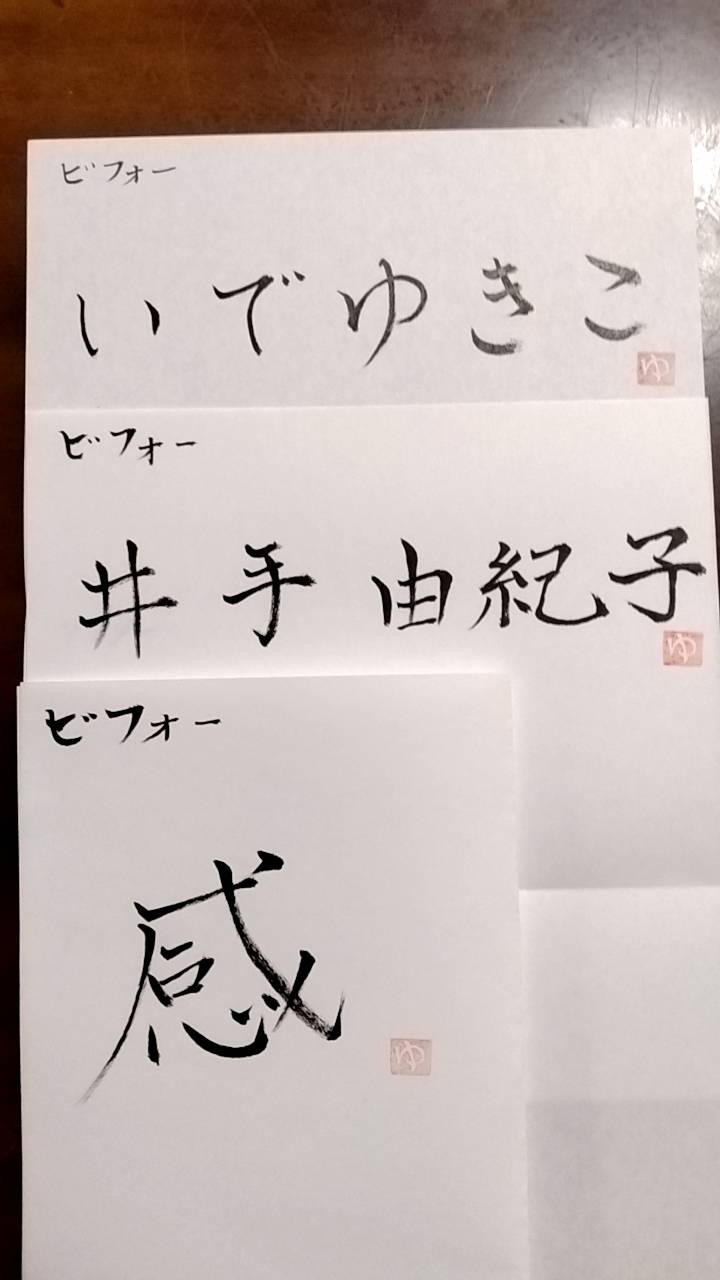 ビフォー
いでゆきこ
ゆ
ビフォー
井手由紀子
ゆ
ビフォー
感
ゆ